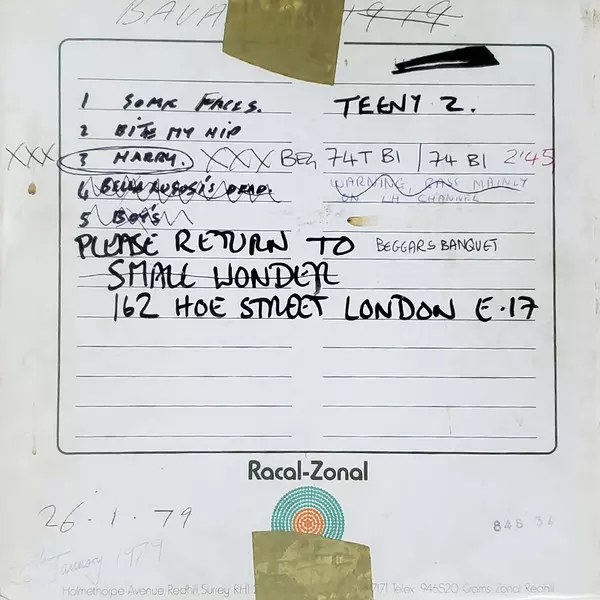 BAVA 1979
1 SOME FACES. TEENY 2.
2 BITE MY HIP
XXX 3 HARRY. XXX BEG 74T B1 / 74 B1 2'45
4 BELA LUGOSI'S DEAD. WARNING, BASS MAINLY
ON LH CHANNEL
5 BOYS
PLEASE RETURN TO BEGGARS BANQUET
SMALL WONDER
162 HOE STREET LONDON E.17
Racal-Zonal
26.1.79
84B 34
January 1979
Holmethorpe Avenue Redhill Surrey RH1 7171 Telex 946520 Grams Zonal Redhill